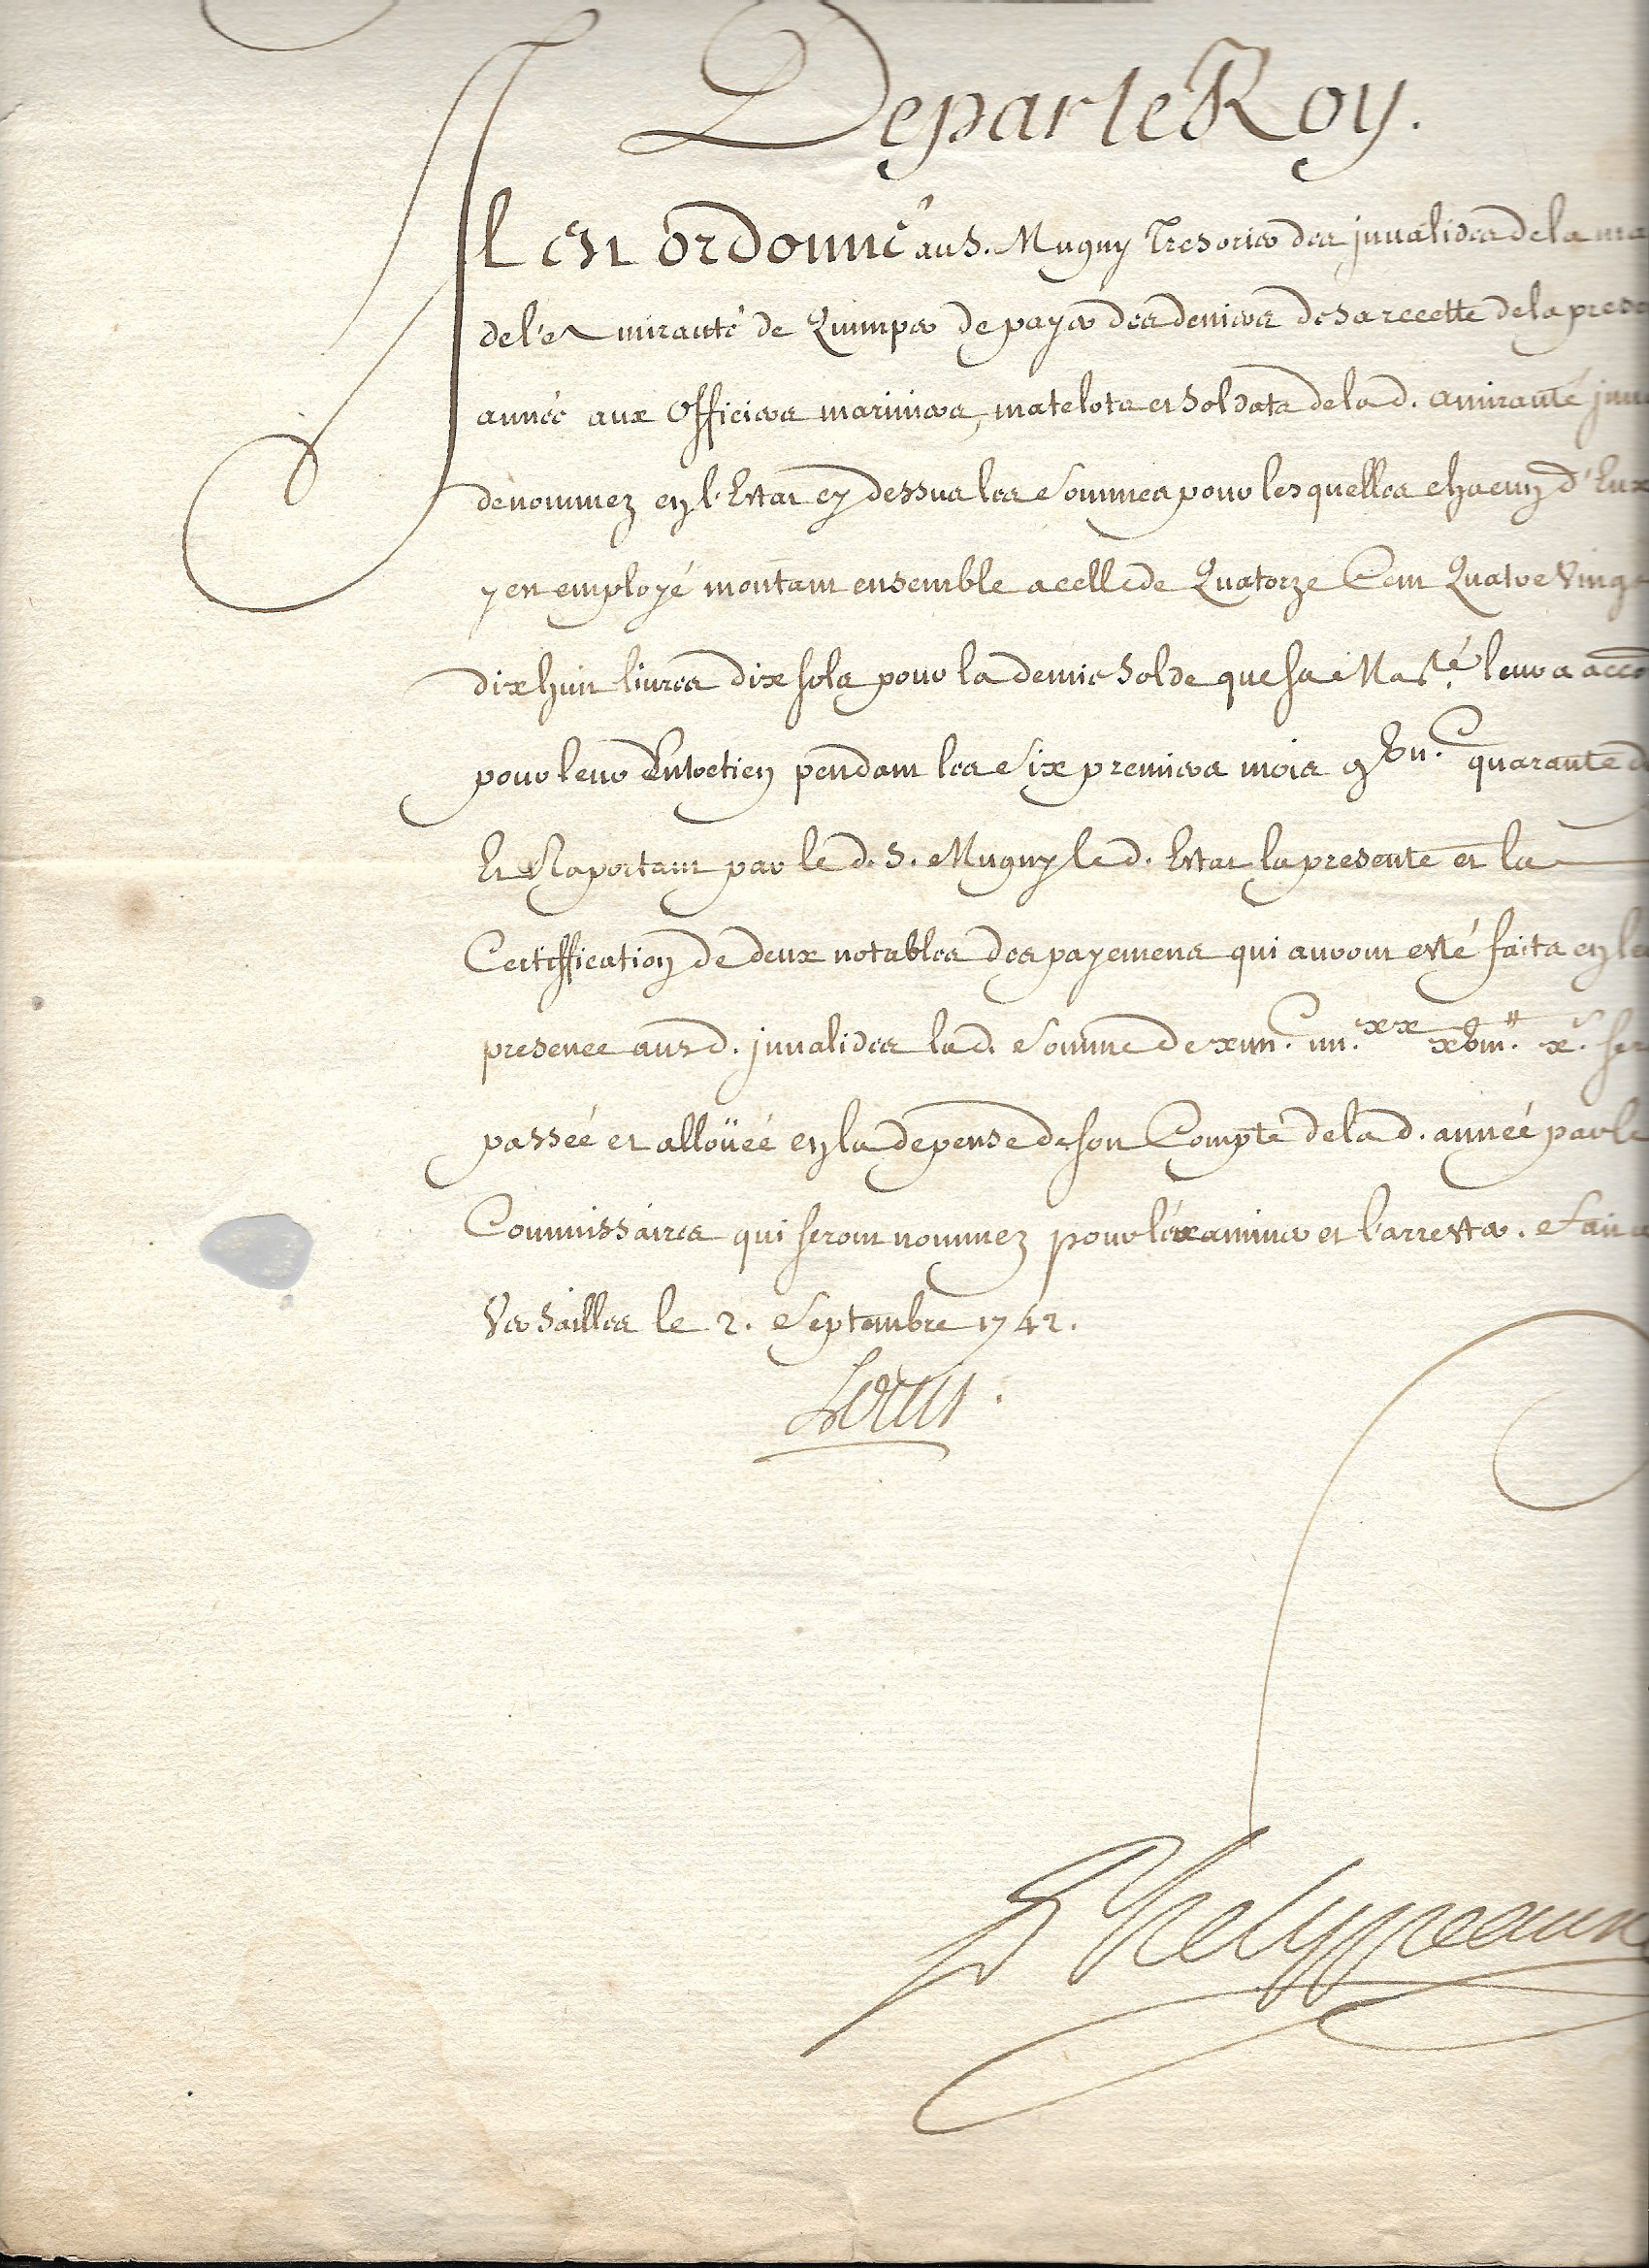 De par le Roy.
Il est ordonné au S. Mugny Tresorier des jnualides de la ma
de l'Amirauté de Quimper de payer des deniers de sa recette de la prese
année aux Officiers mariniers, matelots et Soldats de lad. amirauté jnua
dénommez en l'Estat cy dessus les Sommes pour lesquelles chacun d'Eux
y est employé montant ensemble a celle de Quatorze Cent Quatre Vingt
dixhuit liures dix sols pour la demie Solde que sa Mas.té leur a acco
pour leur Entretien pendant les Six premiers mois quarante d
Et Raportant par le d. S. Mugny led. Estat la presente et la
Certiffication de deux notables des payemens qui auront esté faits en leu
presence ausd. jnualides lad. Somme de xiiii.C iiii.xx xviii.# x.s ser
passée et alloüée en la depense de son Compte de lad. année par le
Commissaires qui seront nommez pour l'éxaminer et l'arrester. Fait a
Versailles le 2. Septembre 1742.
Louis.
Phelypeaux